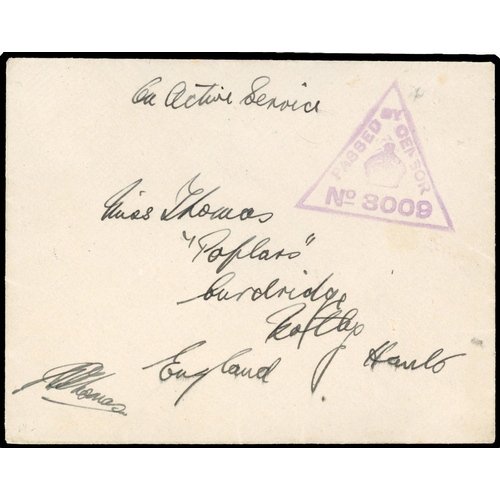 On Active Service
PASSED BY CENSOR
No 3009
Miss Thomas
"Poplars"
Curdridge
Botley
England Hants
Thomas